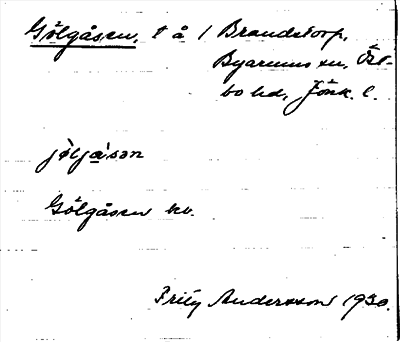 Gölgåsen, t å / Brandstorp,
Byarums sn, Öst-
bo hd, Jönk. l.
jö̀ljå̀sən
Gölgåsen kv.
Fritz Andersson 1930.